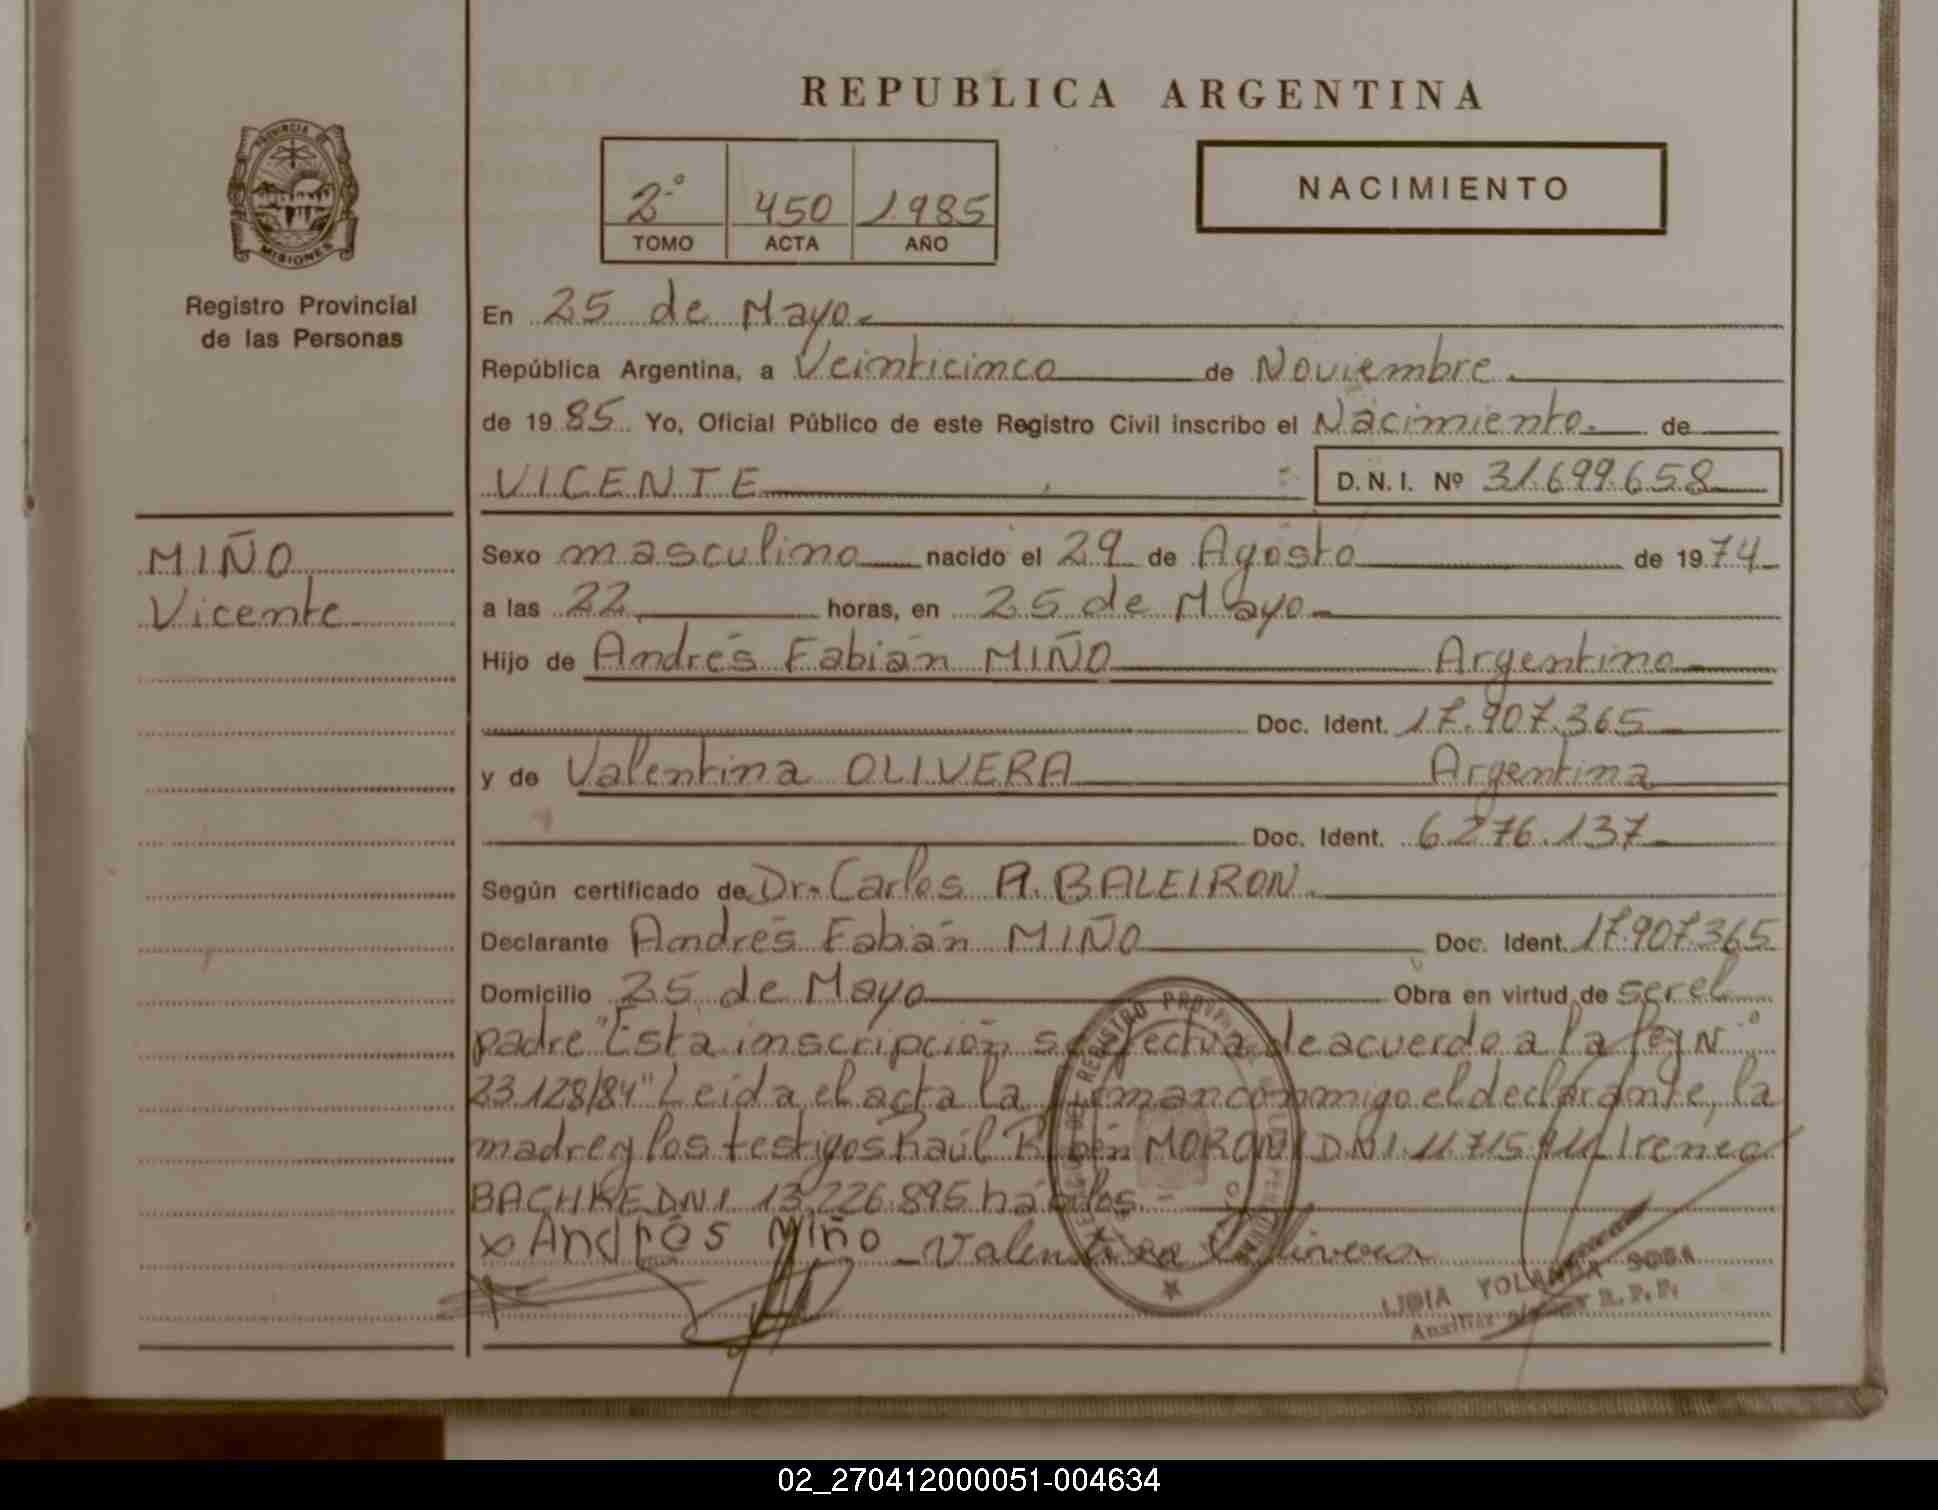 REPUBLICA ARGENTINA
PROVINCIA DE
MISIONES
Registro Provincial
de las Personas
2º 450 1985
TOMO ACTA AÑO
NACIMIENTO
En 25 de Mayo.
República Argentina, a Veinticinco de Noviembre.
de 1985 Yo, Oficial Público de este Registro Civil inscribo el Nacimiento. de
VICENTE D.N.I. Nº 31.699.658
MIÑO
Vicente
Sexo masculino nacido el 29 de Agosto de 1974
a las 22 horas, en 25 de Mayo
Hijo de Andrés Fabián MIÑO Argentino
Doc. Ident. 17.907.365
y de Valentina OLIVERA Argentina
Doc. Ident. 6.276.137
Según certificado de Dr. Carlos A. BALEIRON.
Declarante Andrés Fabián MIÑO Doc. Ident. 17.907.365
Domicilio 25 de Mayo Obra en virtud de ser el
padre "Esta inscripción se efectua de acuerdo a la ley Nº
23.128/84" Leida el acta la firman conmigo el declarante, la
madre y los testigos Raúl Rubén DNI. Ireneo
DNI 13.226.895 hábiles.
x Andrés Miño - Valentina Olivera
REGISTRO
LIDIA YOLANDA SOSA
Auxiliar R.P.P.
02_270412000051-004634